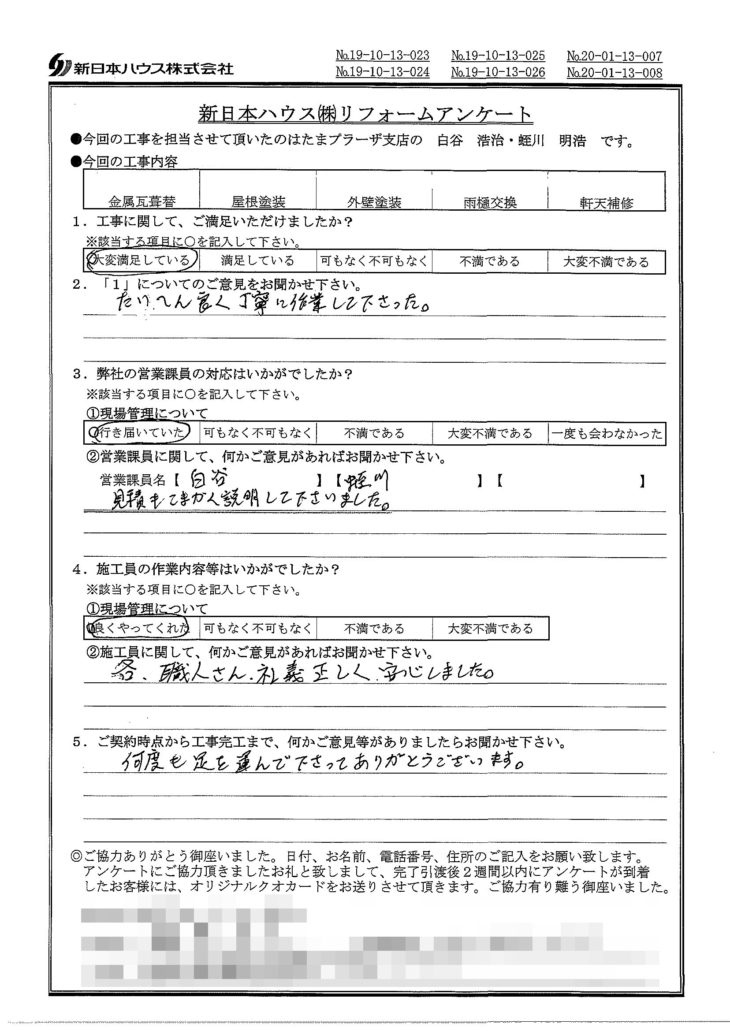 新日本ハウス株式会社
No.19-10-13-023 No.19-10-13-025 No.20-01-13-007
No.19-10-13-024 No.19-10-13-026 No.20-01-13-008
新日本ハウス㈱リフォームアンケート
●今回の工事を担当させて頂いたのはたまプラーザ支店の 白谷 浩治・蛭川 明浩 です。
●今回の工事内容
金属瓦葺替 屋根塗装 外壁塗装 雨樋交換 軒天補修
1．工事に関して、ご満足いただけましたか？
※該当する項目に○を記入して下さい。
大変満足している 満足している 可もなく不可もなく 不満である 大変不満である
2．「1」についてのご意見をお聞かせ下さい。
たいへん良く丁寧に作業して下さった。
3．弊社の営業課員の対応はいかがでしたか？
※該当する項目に○を記入して下さい。
①現場管理について
行き届いていた 可もなく不可もなく 不満である 大変不満である 一度も会わなかった
②営業課員に関して、何かご意見があればお聞かせ下さい。
営業課員名【 白谷 】【 蛭川 】【 】
見積もこまかく説明して下さいました。
4．施工員の作業内容等はいかがでしたか？
※該当する項目に○を記入して下さい。
①現場管理について
良くやってくれた 可もなく不可もなく 不満である 大変不満である
②施工員に関して、何かご意見があればお聞かせ下さい。
各、職人さん、礼義正しく、安心しました。
5．ご契約時点から工事完工まで、何かご意見等がありましたらお聞かせ下さい。
何度も足を運んで下さってありがとうございます。
◎ご協力ありがとう御座いました。日付、お名前、電話番号、住所のご記入をお願い致します。
アンケートにご協力頂きましたお礼と致しまして、完了引渡後２週間以内にアンケートが到着
したお客様には、オリジナルクオカードをお送りさせて頂きます。ご協力有り難う御座いました。